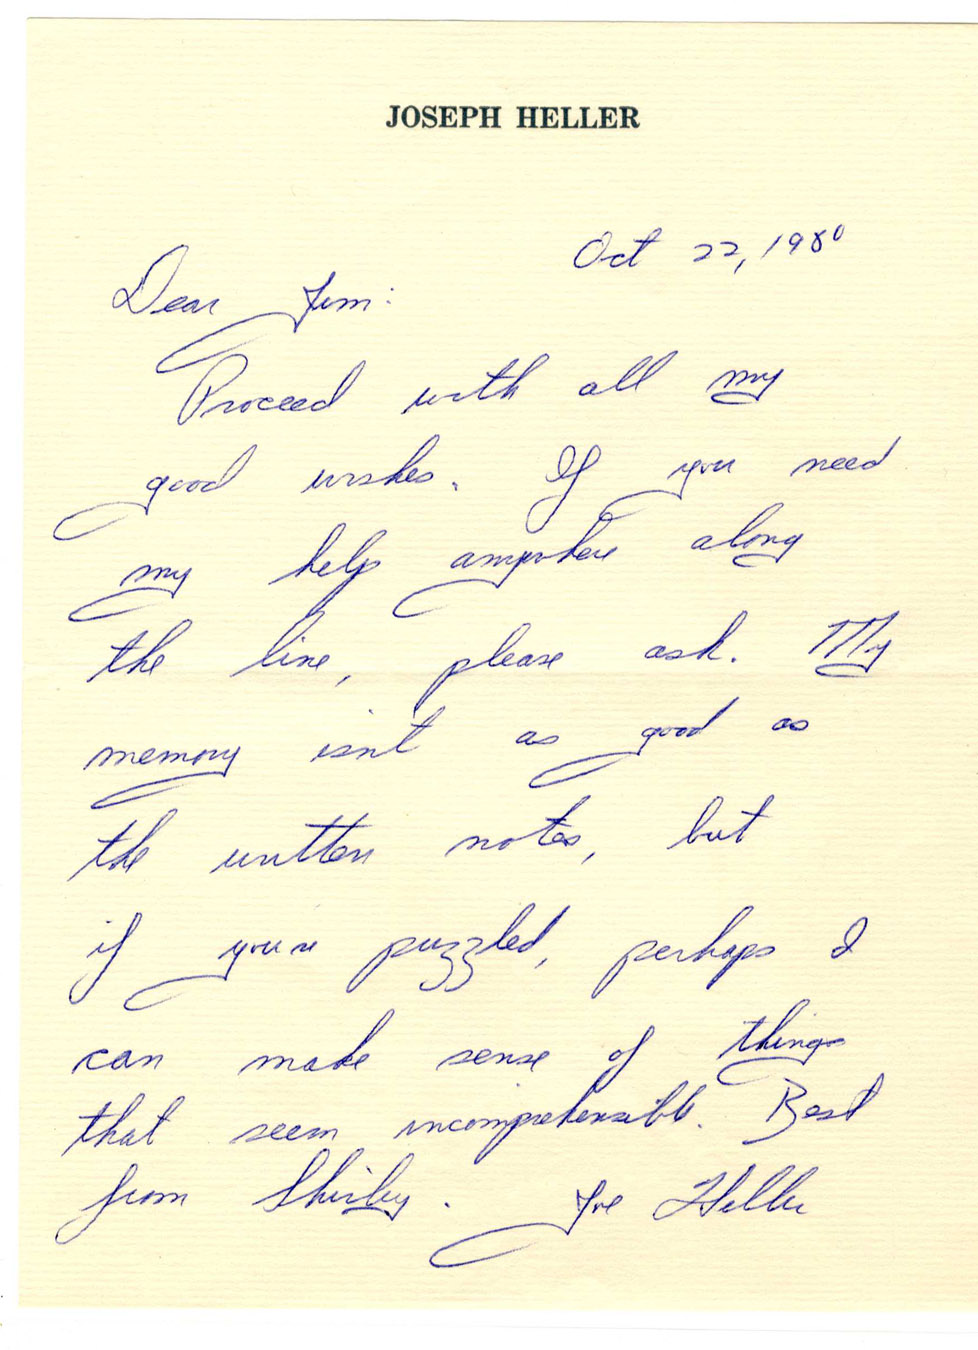 JOSEPH HELLER
Oct 22, 1980
Dear Jim:
Proceed with all my
good wishes. If you need
my help anywhere along
the line, please ask. My
memory isn't as good as
the written notes, but
if you're puzzled, perhaps I
can make sense of things
that seem incomprehensible. Best
from Shirley. Joe Heller